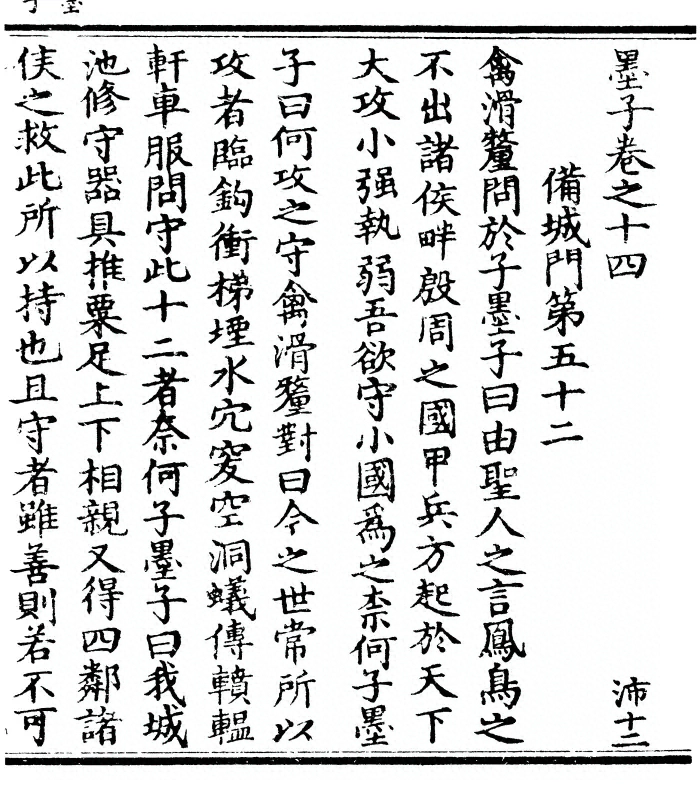 墨子
墨子卷之十四 沛十二
備城門第五十二
禽滑釐問於子墨子曰由聖人之言鳳鳥之
不出諸侯畔殷周之國甲兵方起於天下
大攻小强執弱吾欲守小國爲之柰何子墨
子曰何攻之守禽滑釐對曰今之世常所以
攻者臨鈎衝梯堙水穴窔空洞蟻傳轒轀
軒車服問守此十二者奈何子墨子曰我城
池修守器具推粟足上下相親又得四鄰諸
侯之救此所以持也且守者雖善則若不可